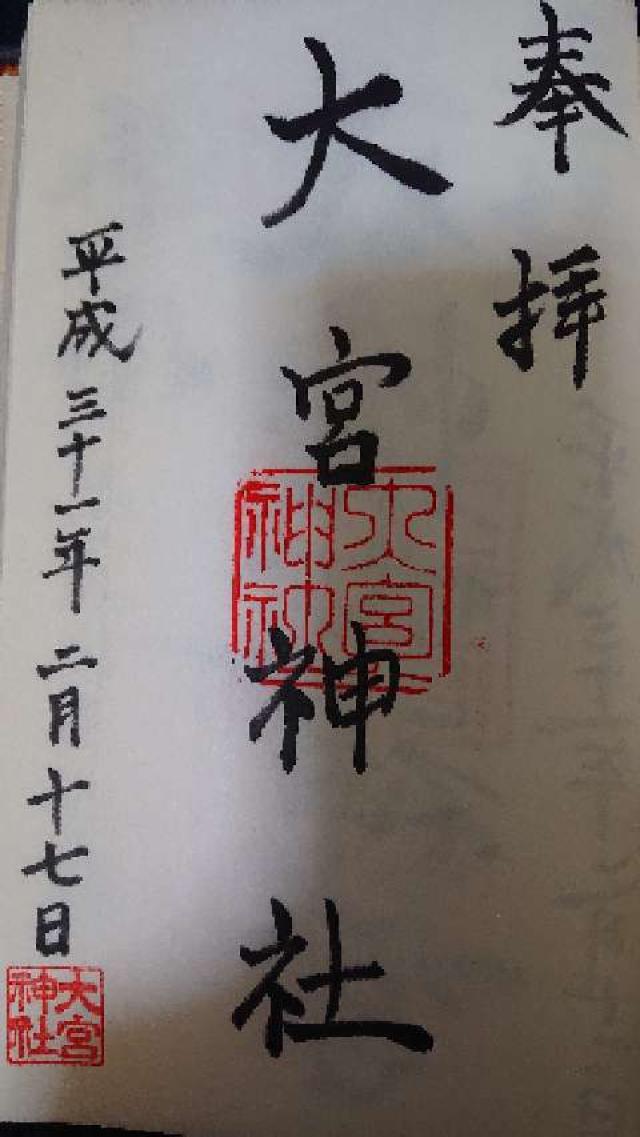 奉拝
大宮神社
大宮神社
平成三十一年二月十七日
大宮神社